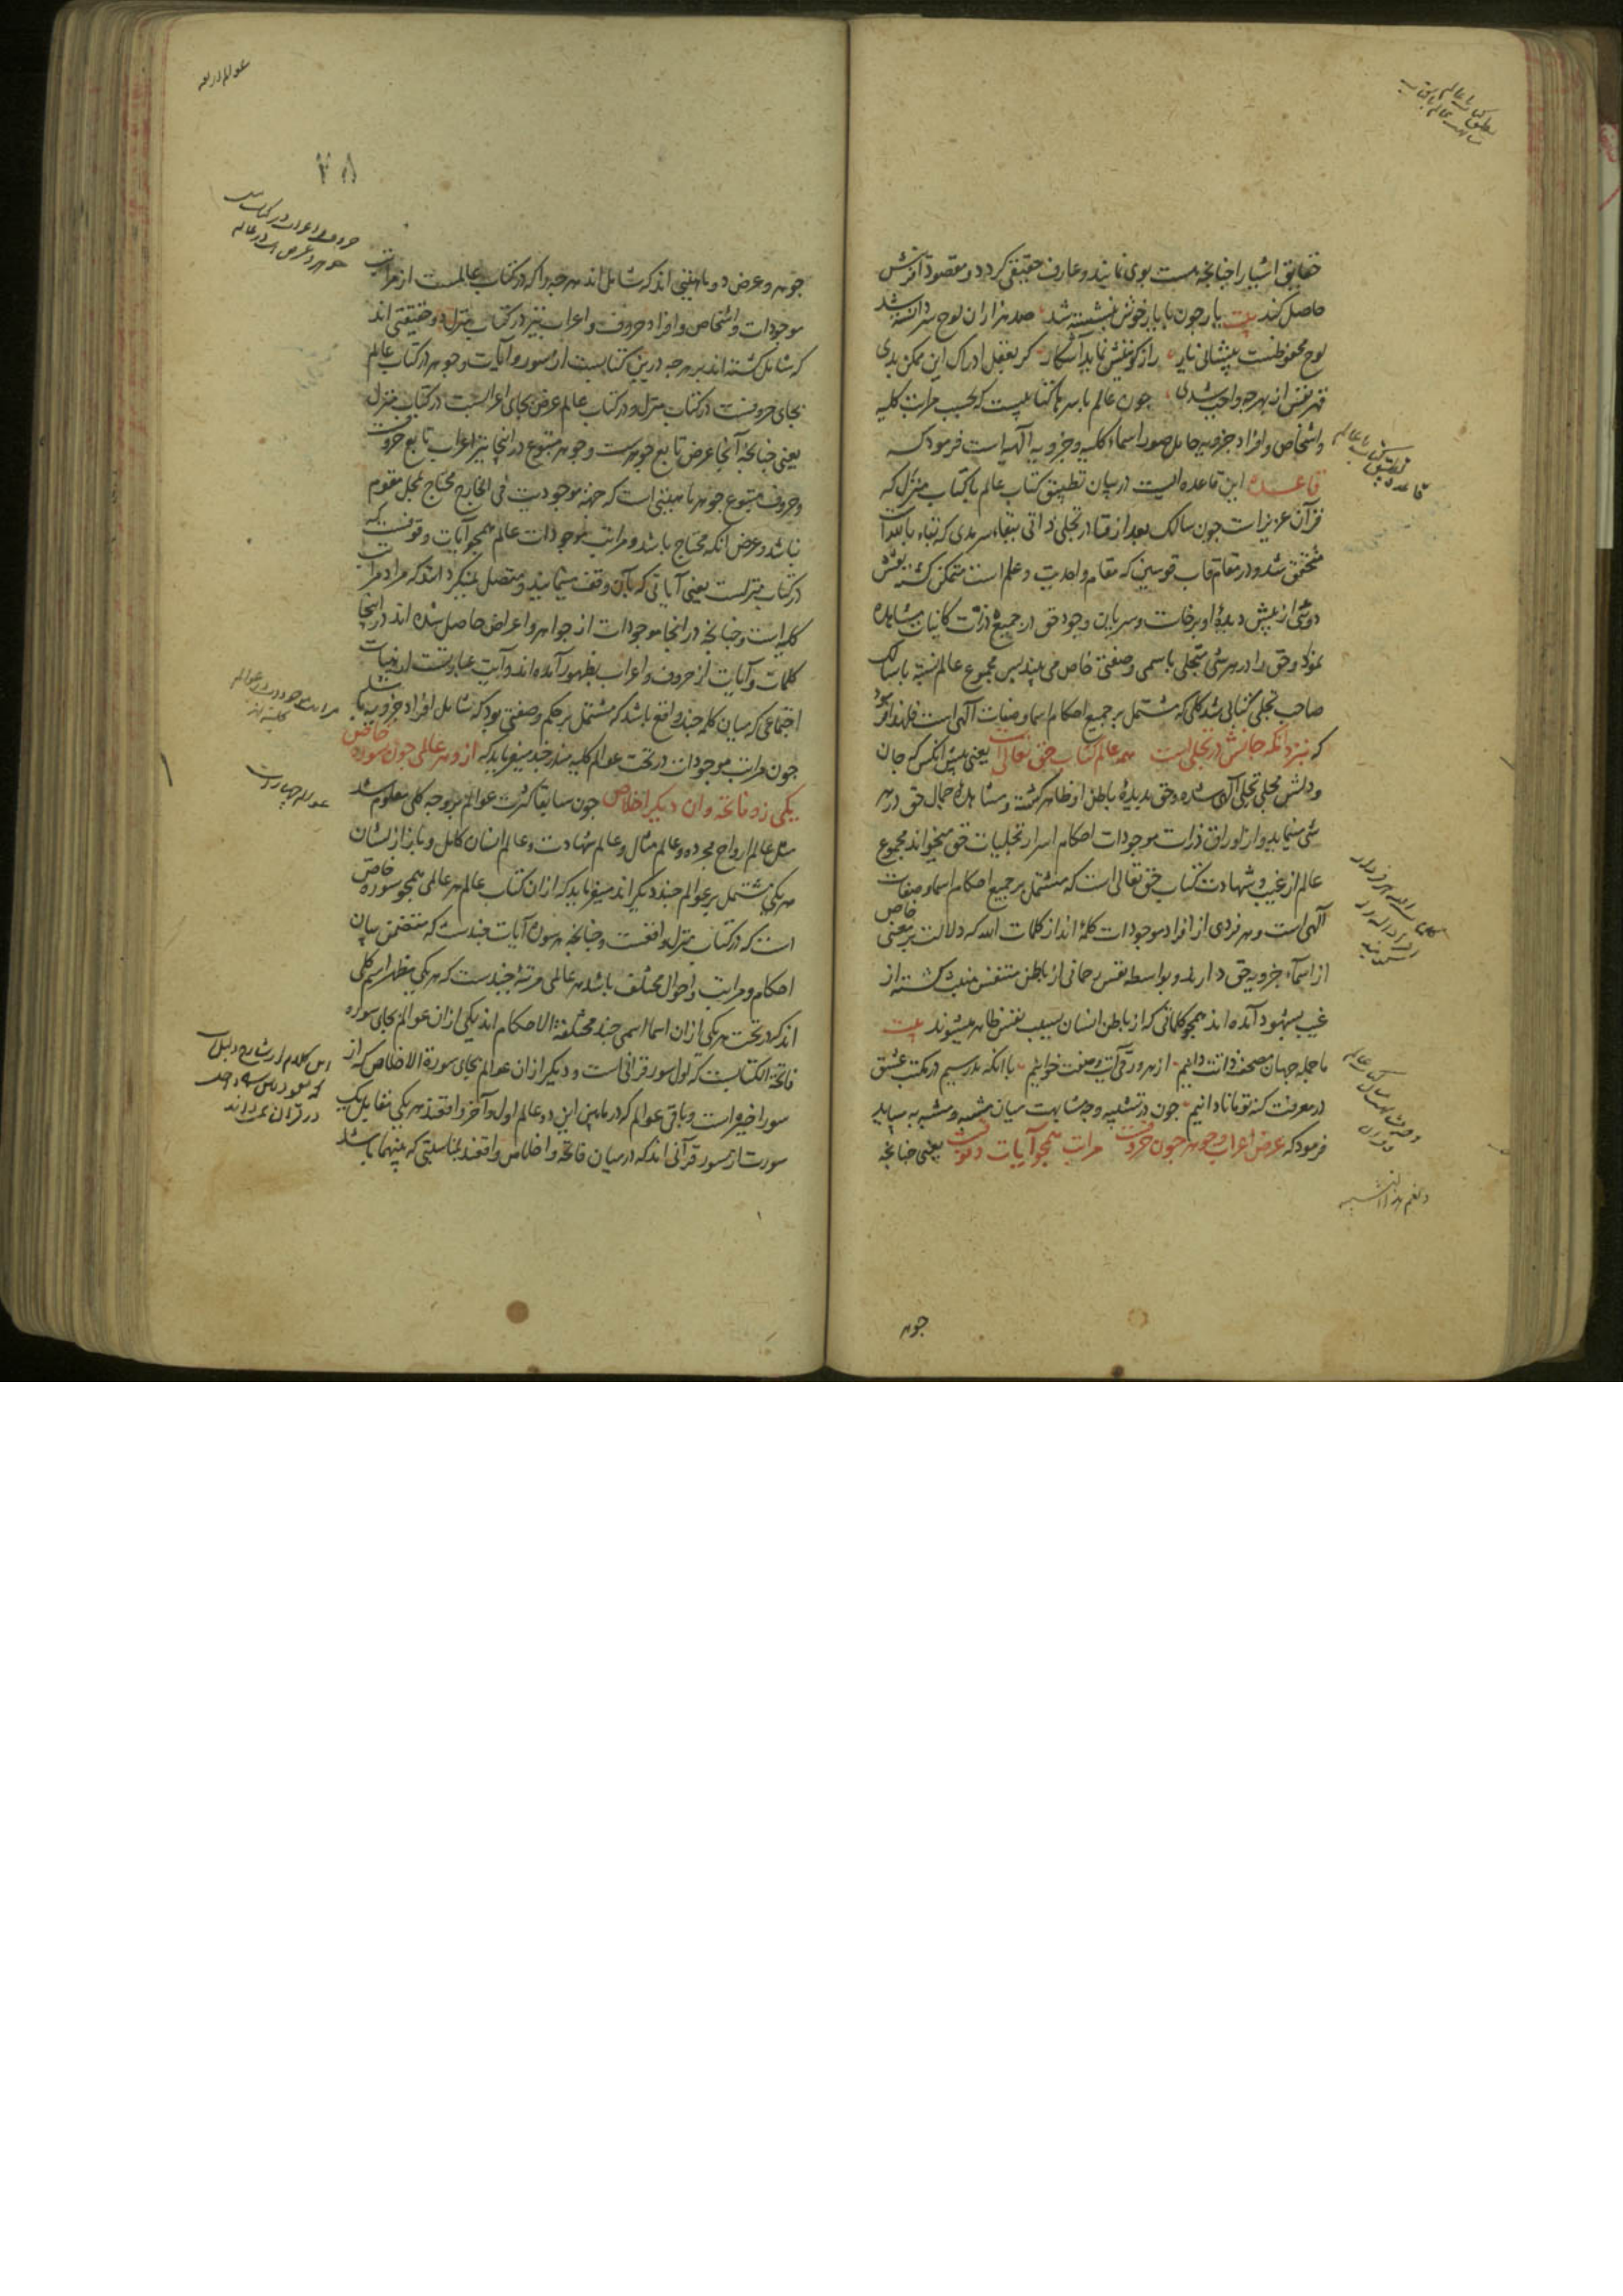 حقایق اشیا را چنانچه هست بوی نمایند و عارف حقیقی گردد و مقصود آفرینش
حاصل کند بیت یار چون با یار خوش بنشسته شد صد هزاران لوح سر دانسته شد
لوح محفوظست پیشانی یار راز کونینش نماید آشکار گر بعقل ادراک این ممکن بدی
قهر نفس از بهر چه واجب شدی چون عالم باسرها کتابیست که بحسب مراتب کلیه
و اشخاص و افراد جزویه حامل صور اسماء کلیه و جزویه الهیه است فرمود که
قاعده این قاعده ایست در بیان تطبیق کتاب عالم با کتاب منزل که
قرآن عزیز است چون سالک بعد از فنا در تجلی ذاتی ببقاء سرمدی که بقاء بالله است
متحقق شد و در مقام قاب قوسین که مقام واحدیت و علم است متمکن گشته نقش
دوئی از پیش دیدۀ او برخاست و سریان وجود حق در جمیع ذرات کاینات مشاهده
نمود و حق را در هر شئ متجلی باسمی و صفتی خاص می بیند پس مجموع عالم نسبة با سالک
صاحب تجلی کتابی شد کلی که مشتمل بر جمیع احکام اسما و صفات الهی است فلهذا فرمود
که بنزد آنکه جانش در تجلی است همه عالم کتاب حق تعالی است یعنی پیش آنکس که جان
و دلش مجلی تجلی الهی شده و حق بدیدۀ باطن او ظاهر گشته و مشاهدۀ جمال حق در هر
شئ مینماید و از اوراق ذرات موجودات احکام اسرار تجلیات حق میخواند مجموع
عالم از غیب و شهادت کتاب حق تعالی است که مشتمل بر جمیع احکام اسما و صفات
الهی است و هر فردی از افراد موجودات کلمۀ اند از کلمات الله که دلالت بر معنی خاص
از اسماء جزویه حق دارند و بواسطه نفس رحمانی از باطن متنفس منبعث گشته از
غیب بشهود آمده اند همچو کلماتی که از باطن انسان بسبب نفس ظاهر میشوند بیت
ما جمله جهان مصحف ذاتت دانیم از هر ورقی آیت وصفت خوانیم با آنکه مدرسیم در مکتب عشق
در معرفت کنه تو ما نادانیم چون در تشبیه وجه مشابهت میان مشبه و مشبه به میباید
فرمود که عرض اعراب و جوهر چون حروفست مراتب همچو آیات وقوفست یعنی چنانچه
جوهر
قاعده تطبیق کتاب با عالم
عوالم اربعه
۲۸
جوهر و عرض دو ماهیتی اند که شامل اند هر چه را که در کتاب عالمست از مراتب
موجودات و اشخاص و افراد حروف و اعراب نیز در کتاب منزل دو حقیقتی اند
که شامل گشته اند بر هر چه درین کتابست از سور و آیات و جوهر در کتاب عالم
بجای حروفست در کتاب منزل و در کتاب عالم عرض بجای اعرابست در کتاب منزل
یعنی چنانچۀ آنجا عرض تابع جوهرست و جوهر متبوع در اینجا نیز اعراب تابع حروفست
و حروف متبوع جوهر ماهیتی است که جهة موجودیت فی الخارج محتاج بمحل مقوم
نباشد و عرض آنکه محتاج باشد و مراتب موجودات عالم همچو آیات وقوفست که
در کتاب منزلست یعنی آیاتی که بآن وقف مینمایند و متصل نمیگردانند که مراد مراتب
کلیه است و چنانچه در انجا موجودات از جواهر و اعراض حاصل شده اند در اینجا
کلمات و آیات از حروف و اعراب بظهور آمده اند و آیت عبارتست از هیات
اجتماعی که میان کلمه چند واقع باشد که مشتمل بر حکم و صفتی بود که شامل افراد جزویه باشد
چون مراتب موجودات در تحت عوالم کلیه مندرجند میفرماید که ازو هر عالمی چون سورۀ خاص
یکی زو فاتحه وان دیگر اخلاص چون سابقا کثرت عوالم بر وجه کلی معلوم شد
مثل عالم ارواح مجرده و عالم مثال و عالم شهادت و عالم انسان کامل و باز از ایشان
هر یکی مشتمل بر عوالم چند دیگر اند میفرماید که ازان کتاب عالم هر عالمی همچو سورۀ خاص
است که در کتاب منزل واقعست و چنانچه هر سورۀ آیات چندست که متضمن بیان
احکام و مراتب و احوال مختلف باشد هر عالمی مرتبۀ چندست که هر یکی مظهر اسم کلی
اند که در تحت هر یکی ازان اسما اسمی چند مختلفة الاحکام اند یکی ازان عوالم بجای سوره
فاتحة الکتابست که اول سور قرآنی است و دیگر ازان عوالم بجای سورة الاخلاص که از
سور اخیره است و باقی عوالم که در مابین این دو عالم اول و آخر واقعند هر یکی مقابل یک
سورت از سور قرآنی اند که در میان فاتحه و اخلاص واقعند بمناسبتی که بینهما باشد
عوالم چهارست